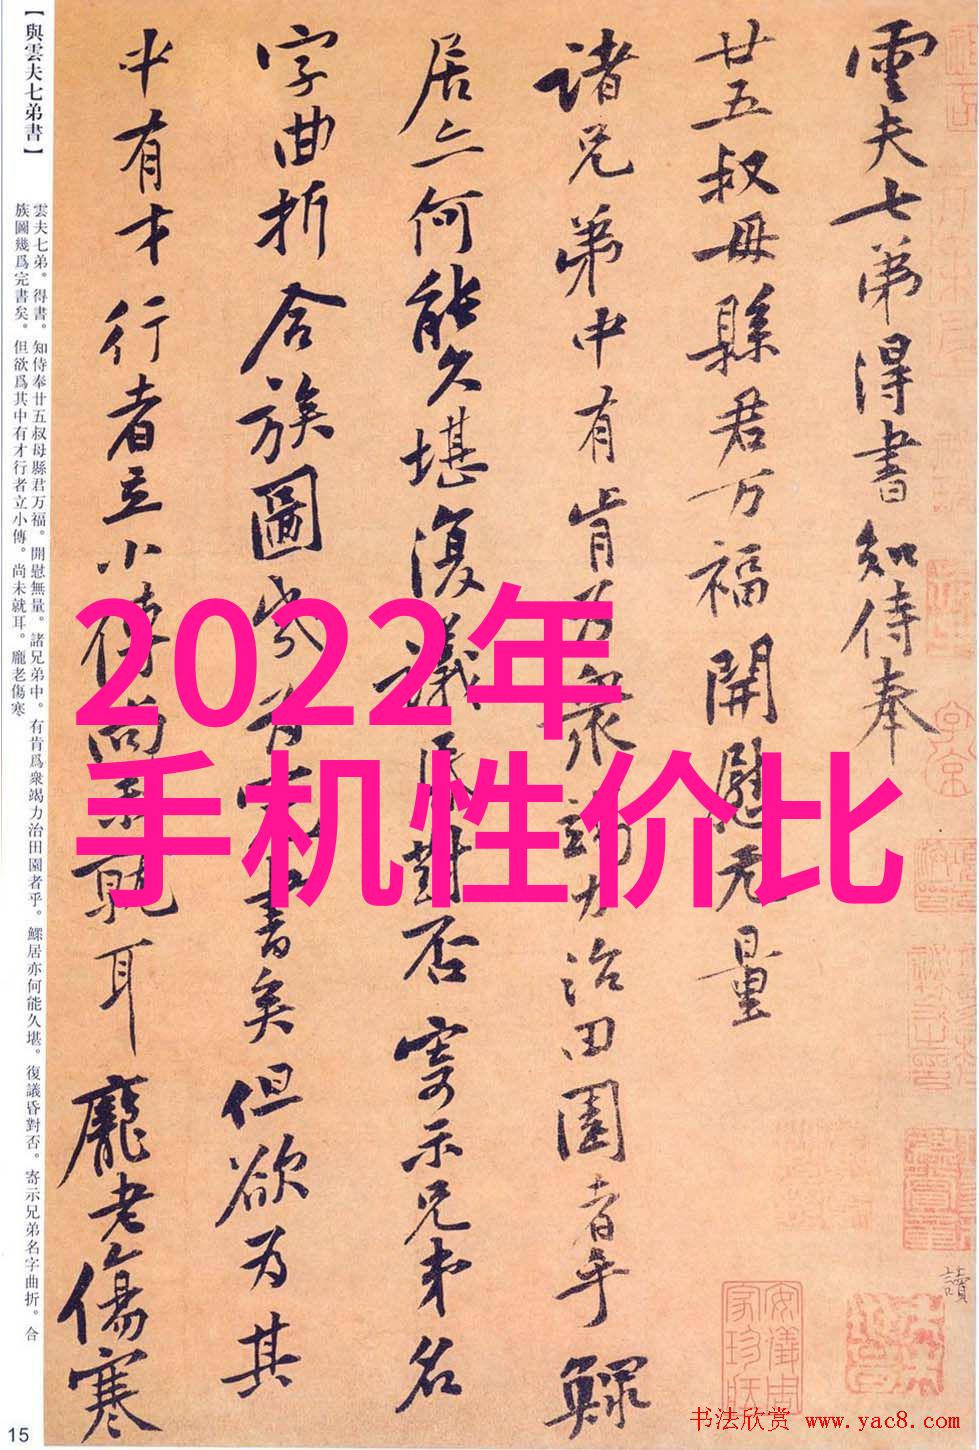 雲夫七弟得書知侍奉
廿五叔母縣君万福開慰无量
諸兄弟中有肯为衆竭力治田園者乎鰥
居亦何能久堪復議昏對否寄示兄弟名
字曲折合族圖幾为完書矣但欲为其
中有才行者立小傳尚未就耳龐老傷寒
讀
安儀周
家珍藏
2022年
手机性价比
【與雲夫七弟書】
雲夫七弟。得書。知侍奉廿五叔母縣君万福。開慰無量。諸兄弟中。有肯爲衆竭力治田園者乎。鰥居亦何能久堪。復議昏對否。寄示兄弟名字曲折。合
族圖幾爲完書矣。但欲爲其中有才行者立小傳。尚未就耳。龐老傷寒
15
书法欣赏 www.yac8.com